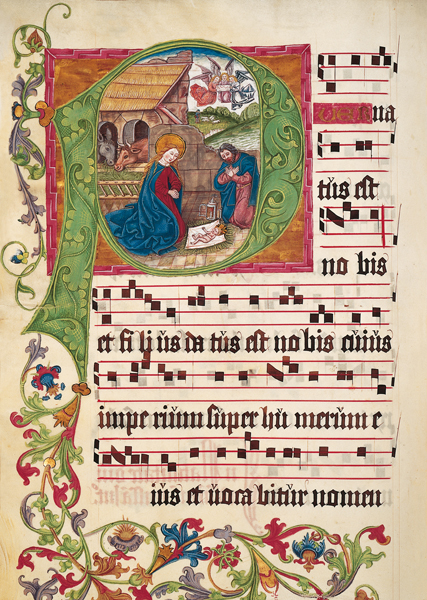 Puer na
tus est
no bis
et fi li us da tus est no bis cuius
impe rium super hu merum e
ius et uoca bitur nomen